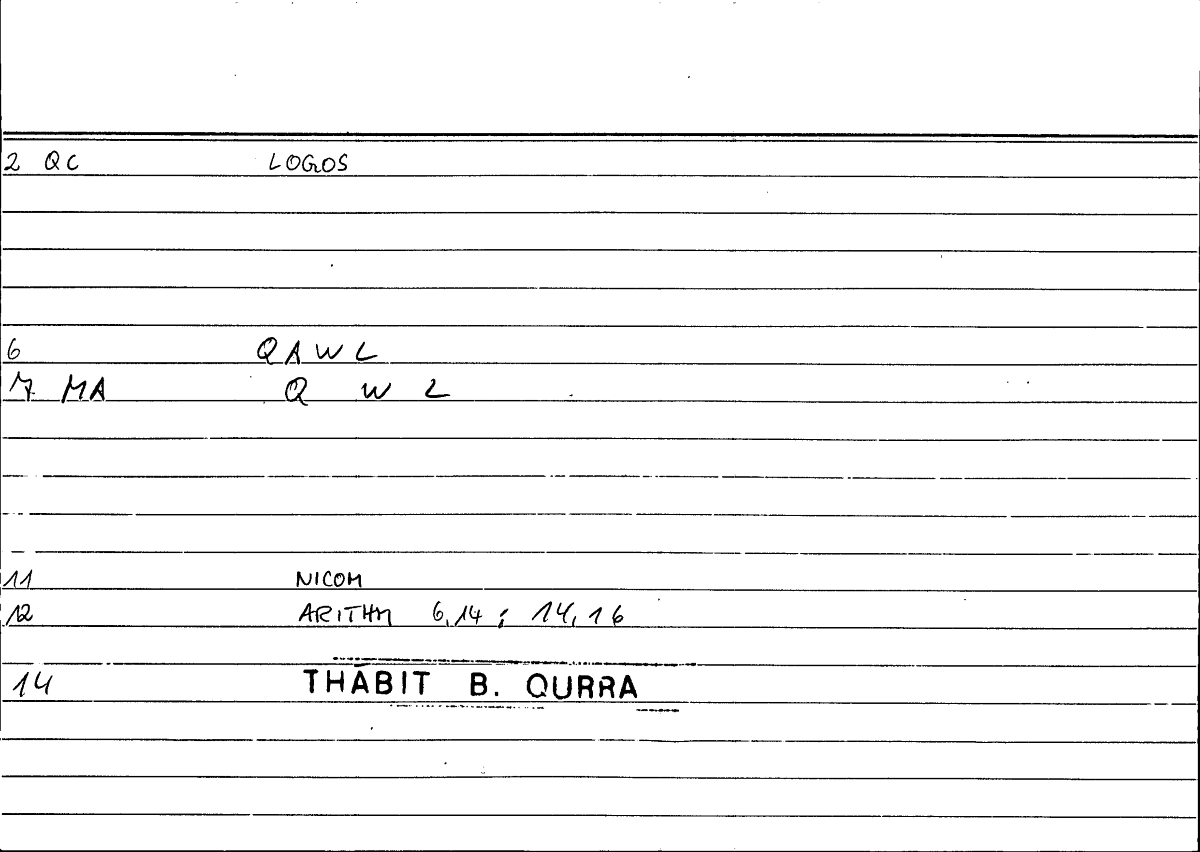 2 QC LOGOS
6 QAWL
7 MA Q W L
11 NICOM
12 ARITHM 6,14 ; 14,16
14 THĀBIT B. QURRA